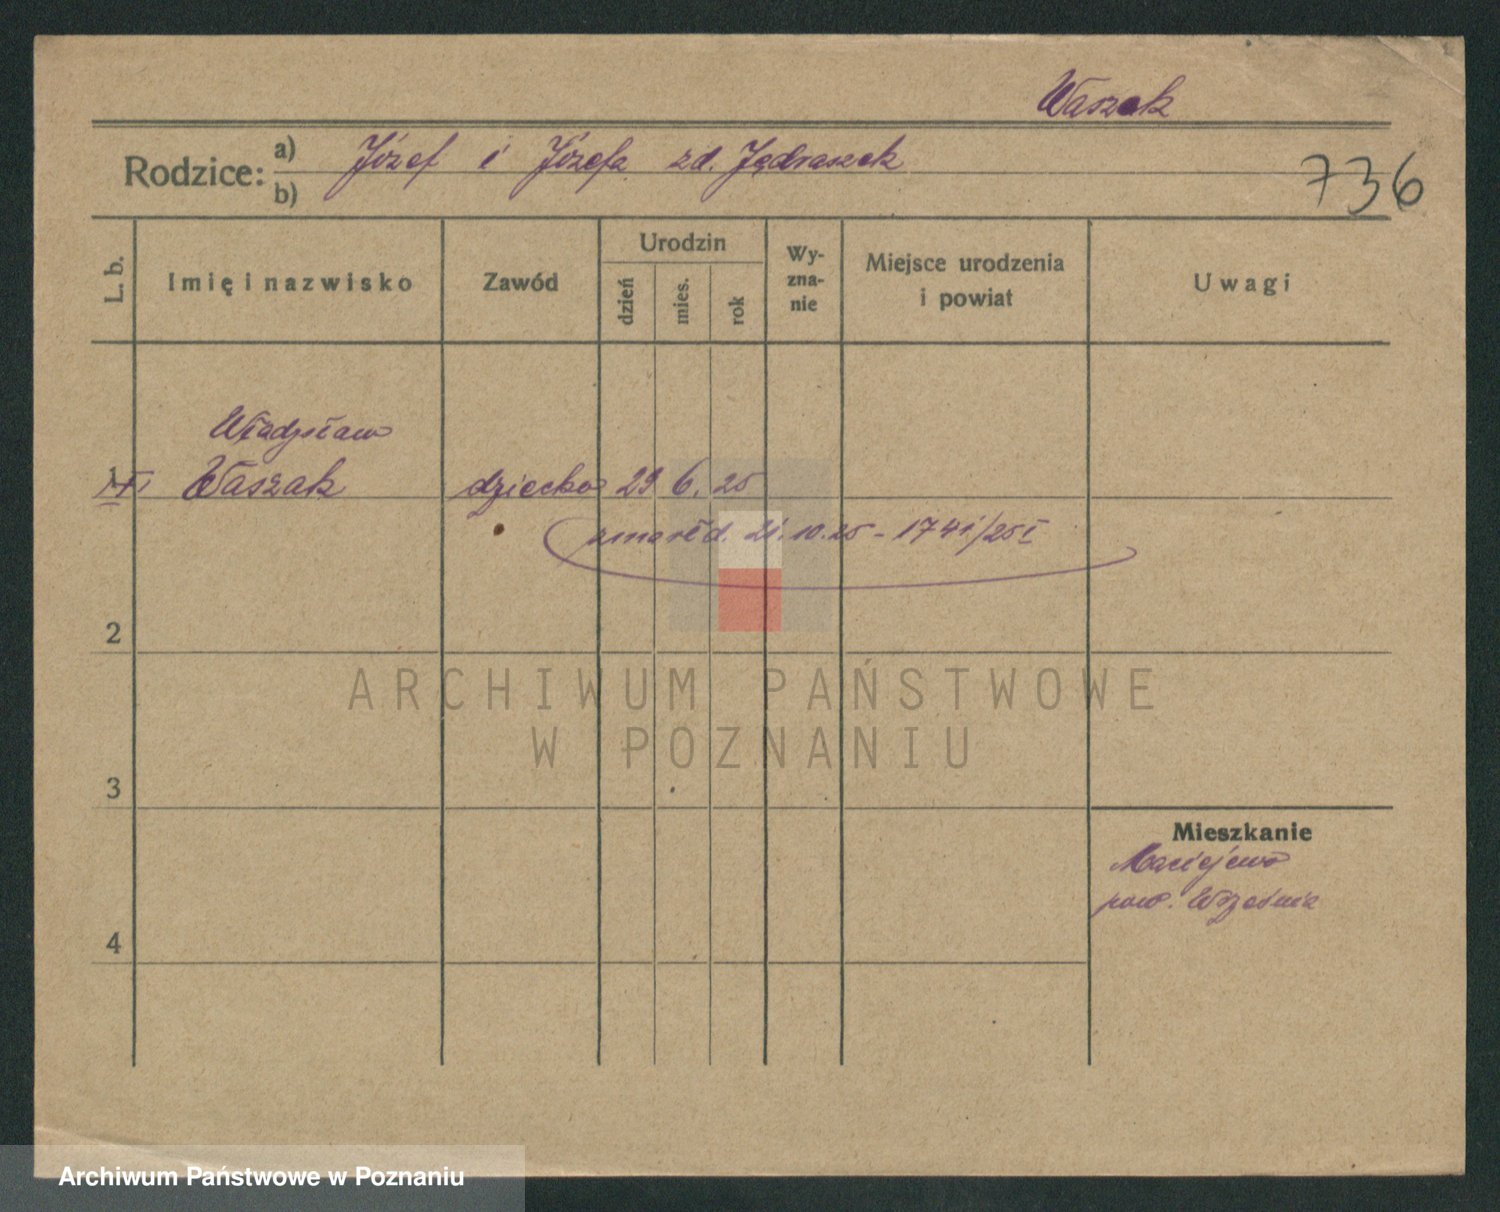 Waszak
Rodzice:
a) Józef i Józefa zd. Jędraszak
b)
736
L. b.
Imię i nazwisko
Zawód
Urodzin
dzień
mies.
rok
Wy-
zna-
nie
Miejsce urodzenia
i powiat
Uwagi
Władysław
1 Waszak dziecko 29 6. 25
zmarł d. 21.10.25 - 1741/25 I
2
ARCHIWUM PAŃSTWOWE
W POZNANIU
3
Mieszkanie
Maciejewo
pow. Września
4
Archiwum Państwowe w Poznaniu